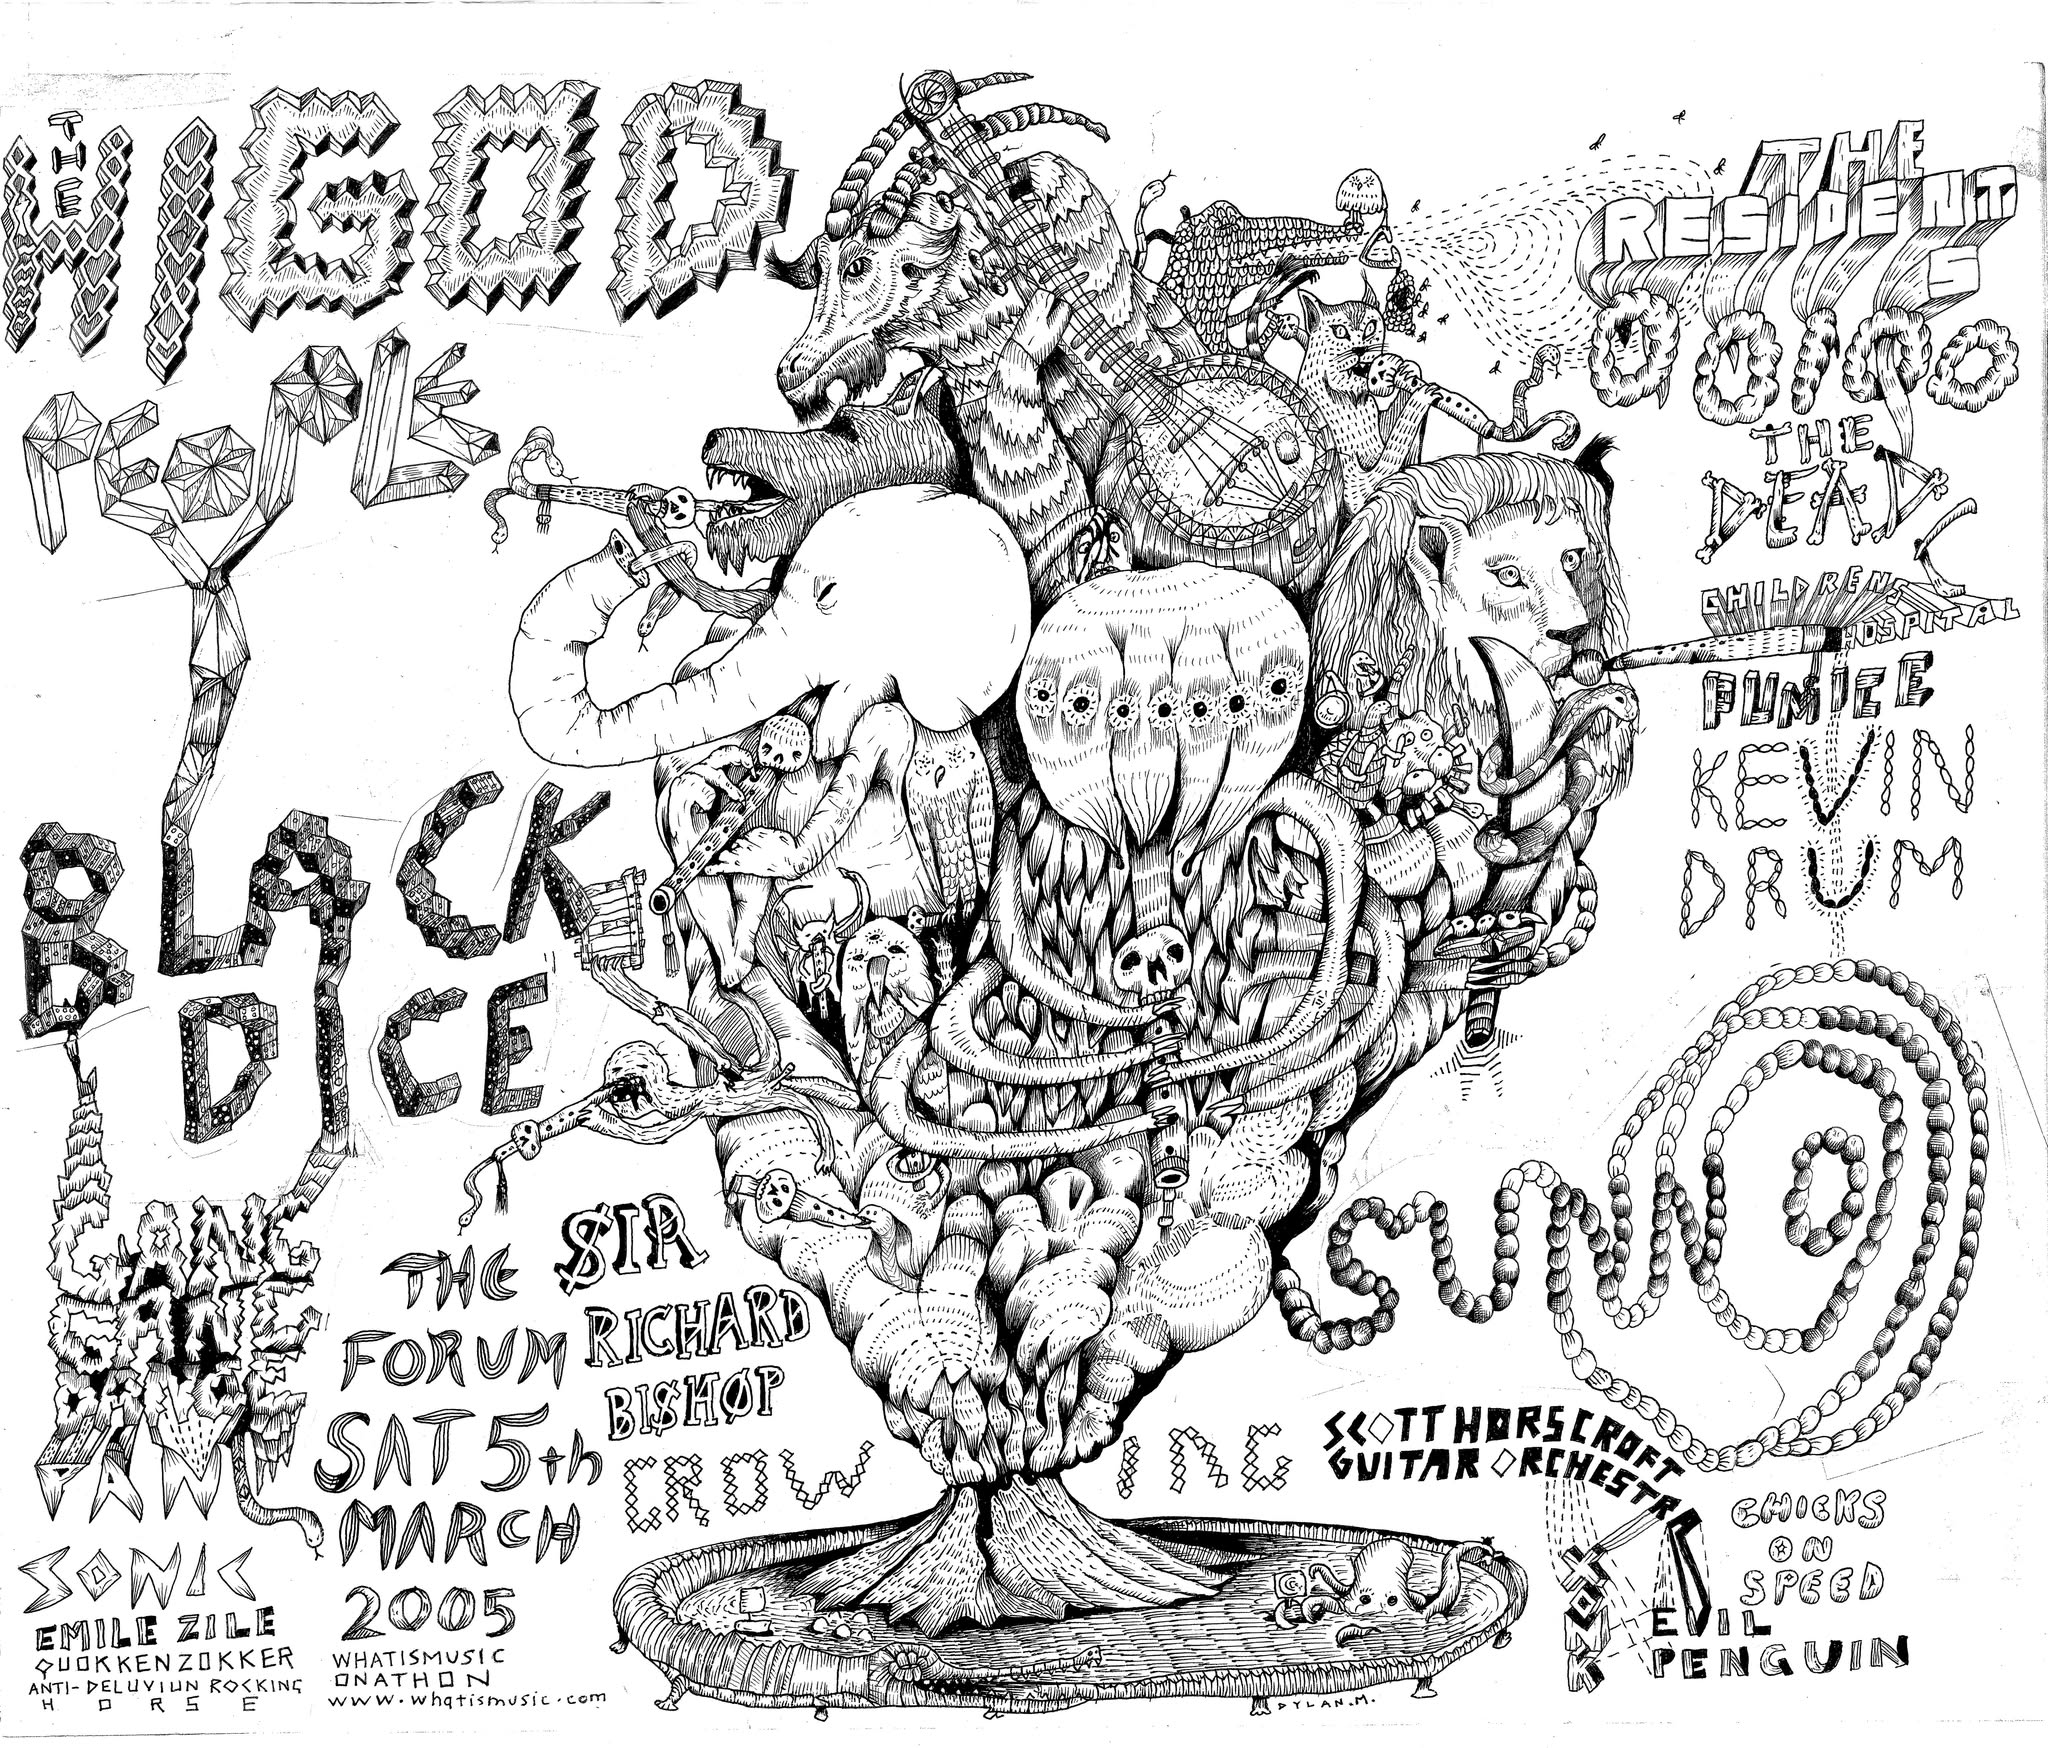 THE
HIGOD
PEOPLE
BLACK
DICE
GANG
GANG
DANG
SONIC
EMILE ZILE
QUOKKENZOKKER
ANTI-DELUVIUN ROCKING
HORSE
THE
FORUM
SAT 5th
MARCH
2005
WHATISMUSIC
ONATHON
www.whatismusic.com
SIR
RICHARD
BISHOP
GROWING
DYLAN.M.
THE
RESIDENT
S
OOIOO
THE
DEAD C
CHILDRENS
HOSPITAL
PUMICE
KEVIN
DRUM
SUNN O
SCOTT HORSCROFT
GUITAR ORCHESTRA
CHICKS
ON
SPEED
KXONK
EVIL
PENGUIN